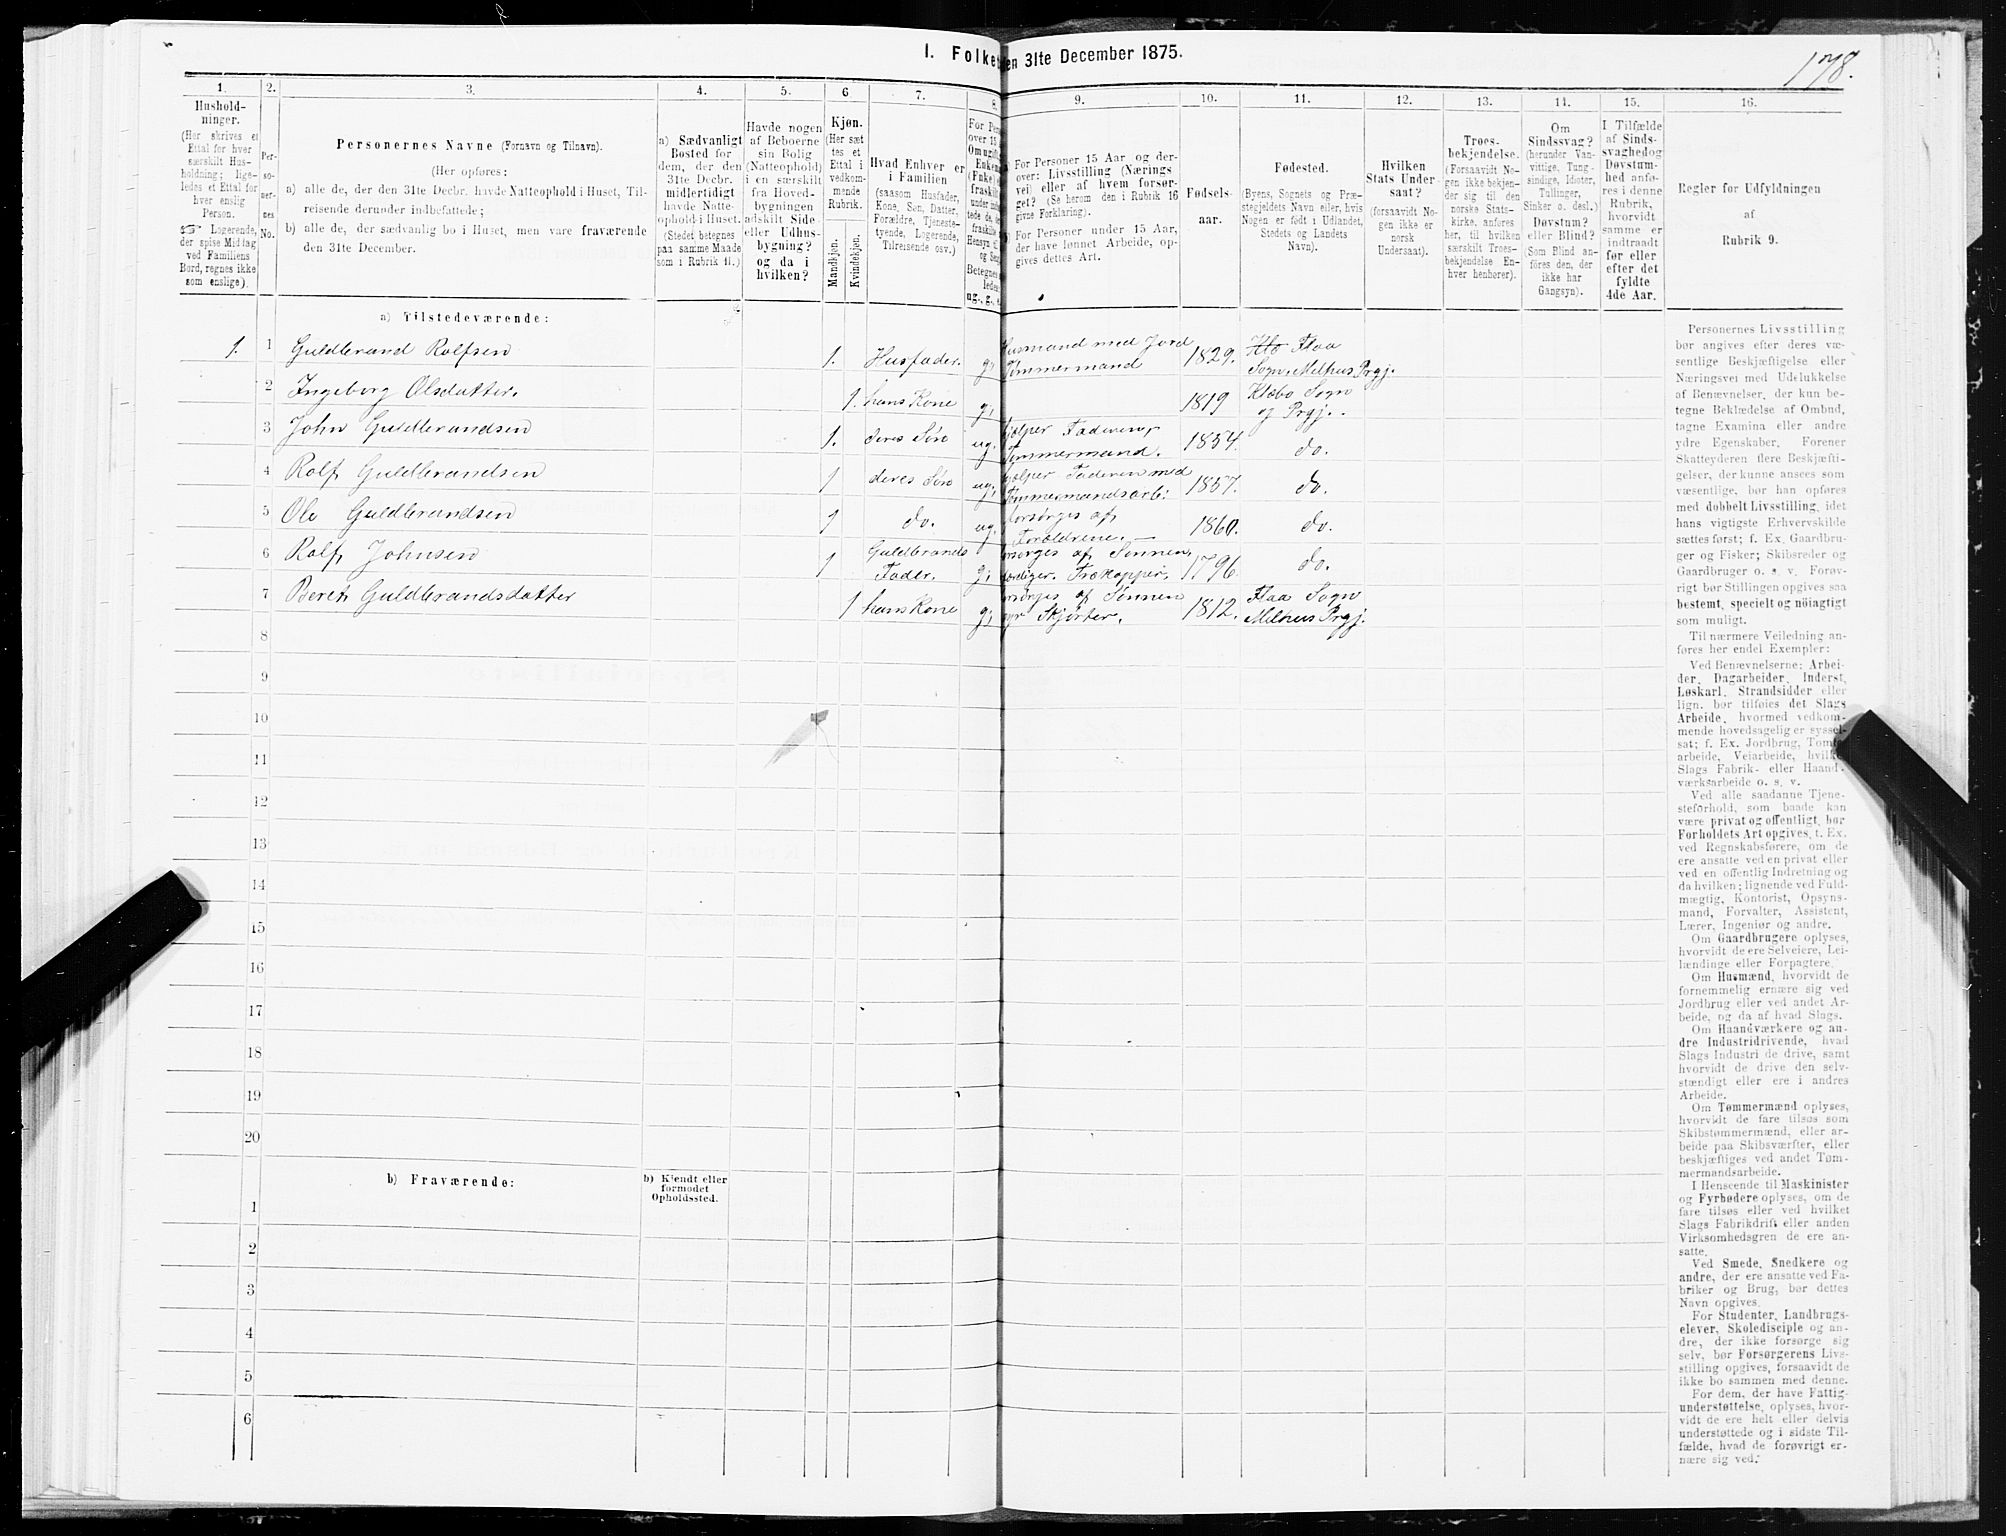 I. Folket
en 31te December 1875.
178.
1.
2.
3.
4.
5.
6
7.
8.
9.
10.
11.
12.
13.
14.
15.
16.
Hushold-
ninger.
(Her skrives et
Ettal for hver
særskilt Hus-
holdning; lige-
ledes et Ettal for
hver enslig
Person.
☞ Logerende,
der spise Middag
ved Familiens
Bord, regnes ikke
som enslige).
Per-
so-
ner-
nes
No.
Personernes Navne (Fornavn og Tilnavn).
(Her opføres:
a) alle de, der den 31te Decbr. havde Natteophold i Huset, Til-
reisende derunder indbefattede;
b) alle de, der sædvanlig bo i Huset, men vare fraværende
den 31te December.
a) Sædvanligt
Bosted for
dem, der den
31te Decbr.
midlertidigt
havde Natte-
ophold i Huset.
(Stedet betegnes
paa samme Maade
som i Rubrik 11.)
Havde nogen
af Beboerne
sin Bolig
(Natteophold)
i en særskilt
fra Hoved-
bygningen
adskilt Side-
eller Udhus-
bygning?
og da i
hvilken?
Kjøn.
(Her sæt
tes et
Ettal i
vedkom-
mende
Rubrik.
Mandkjøn.
Kvindekjøn.
Hvad Enhver er
i Familien
(saasom Husfader,
Kone, Søn, Datter,
Forældre, Tjeneste-
tyende, Logerende,
Tilreisende osv.)
For Personer 15 Aar og der-
over: Livsstilling (Nærings
vei) eller af hvem forsør-
get? (Se herom den i Rubrik 16
givne Forklaring).
For Personer under 15 Aar,
der have lønnet Arbeide, op-
gives dettes Art.
Fødsels-
aar.
Fødested.
(Byens, Sognets og Præ-
stegjeldets Navn eller, hvis
Nogen er født i Udlandet,
Stedets og Landets
Navn).
Hvilken
Stats Under
saat?
(forsaavidt No-
gen ikke er
norsk
Undersaat).
Troes-
bekjendelse.
(Forsaavidt No-
gen ikke bekjen-
der sig til den
norske Stats-
kirke, anføres
her, til hvilken
særskilt Troes-
bekjendelse En-
hver henhører).
Om
Sindssvag?
(herunder Van-
vittige, Tung-
sindige, Idioter,
Tullinger,
Sinker o. desl.)
Døvstum?
eller Blind?
(Som Blind an-
føres den, der
ikke har
Gangsyn).
I Tilfælde
af Sinds-
svaghed og
Døvstum-
hed anfø-
res i denne
Rubrik,
hvorvidt
samme er
indtraadt
før eller
efter det
fyldte
4de Aar.
Regler for Udfyldningen
af
Rubrik 9.
a) Tilstedeværende:
1. 1 Guldbrand Rolfsen 1. Husfader. g, Husmand med Jord Tømmermand 1829. Flaa Sogn, Melhus Prgj.
2 Ingeborg Olsdatter. 1. hans Kone g, 1819 Klæbo Sogn og Prgj.
3 John Guldbrandsen 1. deres Søn ug, Tømmermand. 1854. do.
4 Rolf Guldbrandsen 1 deres Søn ug, hjælper Faderen med Tømmermandsarb: 1857. do.
5 Ole Guldbrandsen 1 do. ug, forsørges af Forældrene. 1860. do.
6 Rolf Johnsen 1 Guldbrands Fader. g, forsørges af Sønnen, 1796. do.
7 Beret Guldbrandsdatter 1 hans Kone g, forsørges af Sønnen syr Skjorter. 1812. Flaa Sogn Melhus Prgj.
8
9
10
11
12
13
14
15
16
17
18
19
20
b) Fraværende:
b) Kjendt eller
formodet
Opholdssted.
1
2
3
4
5
6
Personernes Livsstilling
bør angives efter deres væ-
sentlige Beskjæftigelse eller
Næringsvei med Udelukkelse
af Benævnelser, der kun be-
tegne Beklædelse af Ombud,
tagne Examina eller andre
ydre Egenskaber. Forener
Skatteyderen flere Beskjæfti-
gelser, der kunne ansees som
væsentlige, bør han opføres
med dobbelt Livsstilling, idet
hans vigtigste Erhvervskilde
sættes først; f. Ex. Gaardbru-
ger og Fisker; Skibsreder og
Gaardbruger o. s. v. Forøv-
rigt bør Stillingen opgives saa
bestemt, specielt og nöiagtigt
som muligt.
Til nærmere Veiledning an-
føres her endel Exempler:
Ved Benævnelserne: Arbei-
der, Dagarbeider, Inderst,
Løskarl, Strandsidder eller
lign. bør tilføies det Slags
Arbeide, hvormed vedkom-
mende hovedsagelig er syssel-
sat; f. Ex. Jordbrug, Tomte-
arbeide, Veiarbeide, hvilket
Slags Fabrik- eller Haand-
værksarbeide o. s. v.
Ved alle saadanne Tjene-
steforhold, som baade kan
være privat og offentligt, bør
Forholdets Art opgives, t. Ex.
ved Regnskabsførere, om de
ere ansatte ved en privat eller
ved en offentlig Indretning og
da hvilken; lignende ved Fuld-
mægtig, Kontorist, Opsyns-
mand, Forvalter, Assistent,
Lærer, Ingeniør og andre.
Om Gaardbrugere oplyses,
hvorvidt de ere Selveiere, Lei-
lændinge eller Forpagtere.
Om Husmænd, hvorvidt de
fornemmelig ernære sig ved
Jordbrug eller ved andet Ar-
beide, og da af hvad Slags.
Om Haandværkere og an-
dre Industridrivende, hvad
Slags Industri de drive, samt
hvorvidt de drive den selv-
stændigt eller ere i andres
Arbeide.
Om Tømmermænd oplyses,
hvorvidt de fare tilsøs som
Skibstømmermænd, eller ar-
beide paa Skibsværfter, eller
beskjæftiges ved andet Tøm-
mermandsarbeide.
I Henseende til Maskinister
og Fyrbødere oplyses, om de
fare tilsøs eller ved hvilket
Slags Fabrikdrift eller anden
Virksomhedsgren de ere an-
satte.
Ved Smede, Snedkere og
andre, der ere ansatte ved Fa-
briker og Brug, bør dettes
Navn opgives.
For Studenter, Landbrugs-
elever, Skoledisciple og an-
dre, der ikke forsørge sig
selv, bør Forsørgerens Livs-
stilling opgives, forsaavidt de
ikke bo sammen med denne.
For dem, der have Fattig-
understøttelse, oplyses, hvor-
vidt de ere helt eller delvis
understøttede og i sidste Til-
fælde, hvad de forøvrigt er-
nære sig ved.